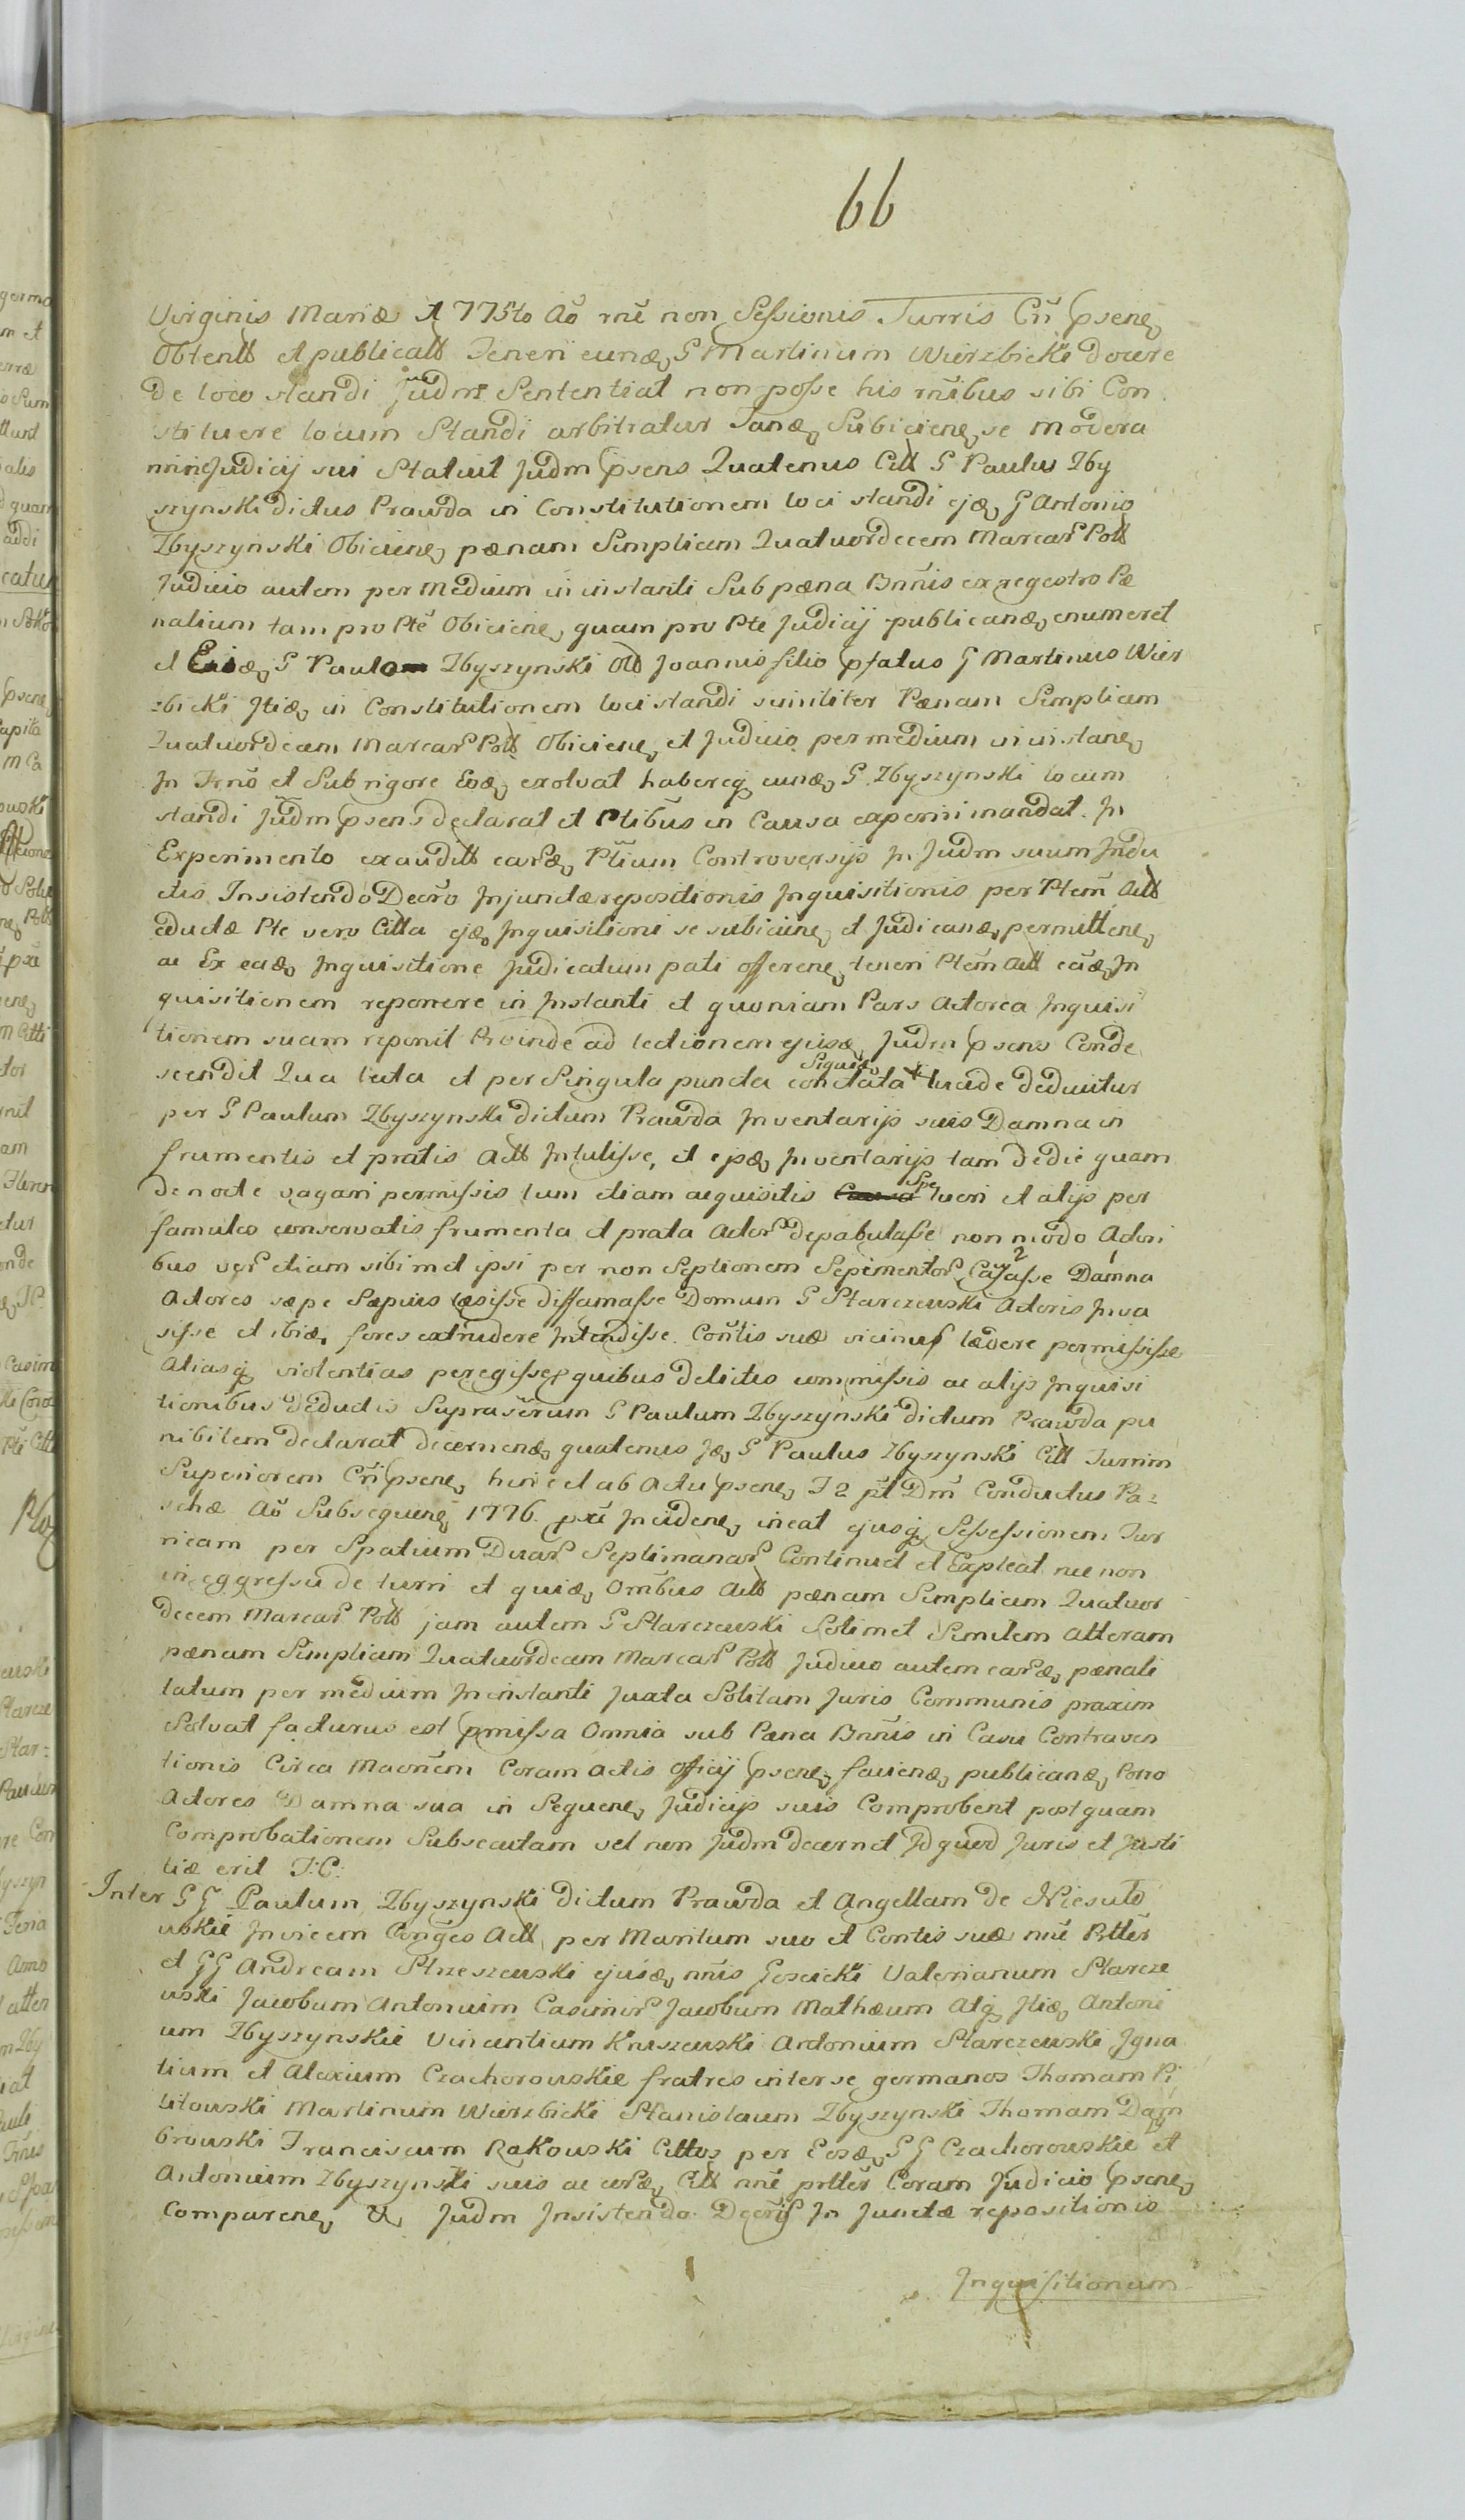 66
Virginis Mariæ 1775to Aõ rnẽ non Sessionis Turris Cñ psene
Obtentt et publicatt Teneri eunæ G Martinum Wierzbicki docere
de loco standi Judm Sententiat non posse his rnibus sibi Con
stituere locum Standi arbitratur Tanæ Subiiciene se modera
mini Judicij sui Statuit Judm psens Quatenus Citt G Paulus Zby
szynski dictus Prawda in Constitutionem loci standi ejæ G Antonio
Zbyszynski Obiciene pænam Simplicem Quatuordecem Marcar Poll
Judicio autem per Medium in instanti Sub pæna Bnnis ex regestro Pæ
nalium tam pro Pte Obiciene quam pro Pte Judicij publicanæ enumeret
et Eisæ G Paulo Zbyszynski Olb Joannis filio pfatus G Martinus Wier
zbicki Itiæ in Constitutionem loci standi similiter Pænam Simplicem
Quatuordecem Marcar Poll Obiciene et Judicio per medium in instane
In Trnõ et Sub rigore Eoæ exolvat habereq eunæ G Zbyszynski locum
standi Judm psens declarat et Ptibus in Causa experiri mandat. In
Experimento exauditt earæ Ptium Controversijs In Judm suum Indu
ctis Insistendo Decrõ Injunctæ repositionis Inquisitionis per Ptem Actt
eductæ Pte vero Citta ejæ Inquisitioni se subiciene et Judicanæ permittene
ac Ex eadæ Inquisitione Judicatum pati offerene teneri Ptem Actt eãæ In
quisitionem reponere in Instanti et quoniam Pars Actorea Inquisi
tionem suam reponit Proinde ad lectionem ejusæ Judm psens Conde
scendit Qua lecta et per Singula puncta conctata Siquidem lucide deducitur
per G Paulum Zbyszynski dictum Prawda Inventarijs suis Damna in
frumentis et pratis Actt Intulisse, et epæ Inventarijs tam de die quam
de nocte vagari permissis tum etiam acquisitis Spe lucri et alijs per
famulos conservatis frumenta et prata Actor depabulasse non modo Actori
bus ver etiam sibimet ipsi per non Septionem Sepimentor Causasse Damna
Actores sæpe Sæpius læsisse diffamasse Domum G Starczewski Actoris Inva
sisse et ibiæ fores extrudere Intendisse. Contis suæ vicinus lædere permisisse
aliasq violentias peregisse quibus delictis commissis ac alijs Inquisi
tionibus deductis Suprasẽrum G Paulum Zbyszynski dictum Prawda pu
nibilem declarat decernenæ quatenus Jæ G Paulus Zbyszynski Citt Turrim
Superiorem Cñ psene hinc et ab Actu psene F 2 pt Dm Conductus Pa-
schæ Aõ Subsequene 1776. pxe Incidene ineat ejusq Sessionem Tur
ricam per Spatium Duar Septimanar Continuet et Expleat nec non
in eggressu de turri et quiæ Omibus Actt pænam Simplicem Quatuor
decem Marcar Poll jam autem G Starczewski Solimet Similem alteram
pænam Simplicem Quatuordecem Marcar Poll Judicio autem earæ pænali
tatum per medium In instanti Juxta Solitam Juris Communis praxim
Solvat facturus est pmissa Omnia sub Pæna Bnnis in Casu Contraven
tionis Circa Maonem Coram Actis Officij psene facienæ publicanæ Porro
Actores Damna sua in Sequene Judicijs suis Comprobent postquam
Comprobationem Subsecutam vel non Judm decernet Id quod Juris et Justi
tiæ erit I:C:
Inter GG Paulum Zbyszynski dictum Prawda et Angellam de Niesuło
wskie Invicem Conges Actt per Maritum suo et Contis suæ nnẽ Pttẽr
et GG Andream Strzeszewski ejusæ nnis Goscicki Valerianum Starcze
wski Jacobum Antonium Casimir Jacobum Mathæum Atq Itiæ Antoni
um Zbyszynskie Vincentium Kruszewski Antonium Starczewski Igna
tium et Alexium Czachorowskie fratres inter se germanos Thomam Pi
litowski Martinum Wierzbicki Stanislaum Zbyszynski Thomam Dam
browski Franciscum Rakowski Cittos per Eosæ GG Czachorowskie et
Antonium Zbyszynski suis ac ceræ Citt nnẽ pttẽr Coram Judicio psene
Comparene & Judm Insistendo Decrijs In Junctæ repositionis
Inquisitionum